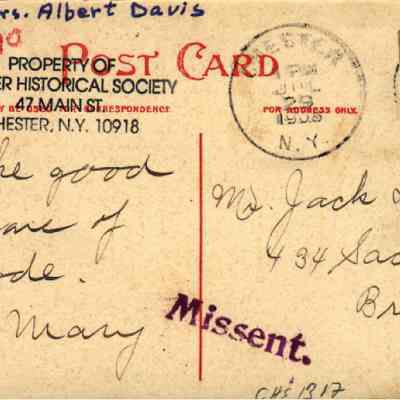 rs. Albert Davis
POST CARD
PROPERTY OF
ER HISTORICAL SOCIETY
47 MAIN ST.
HESTER, N.Y. 10918
Y BE USED FOR CORRESPONDENCE
FOR ADDRESS ONLY.
HESTER
29
N.Y.
good
of
Mary
Mr. Jack
434 Sac
Br
Missent.
CHS 1317